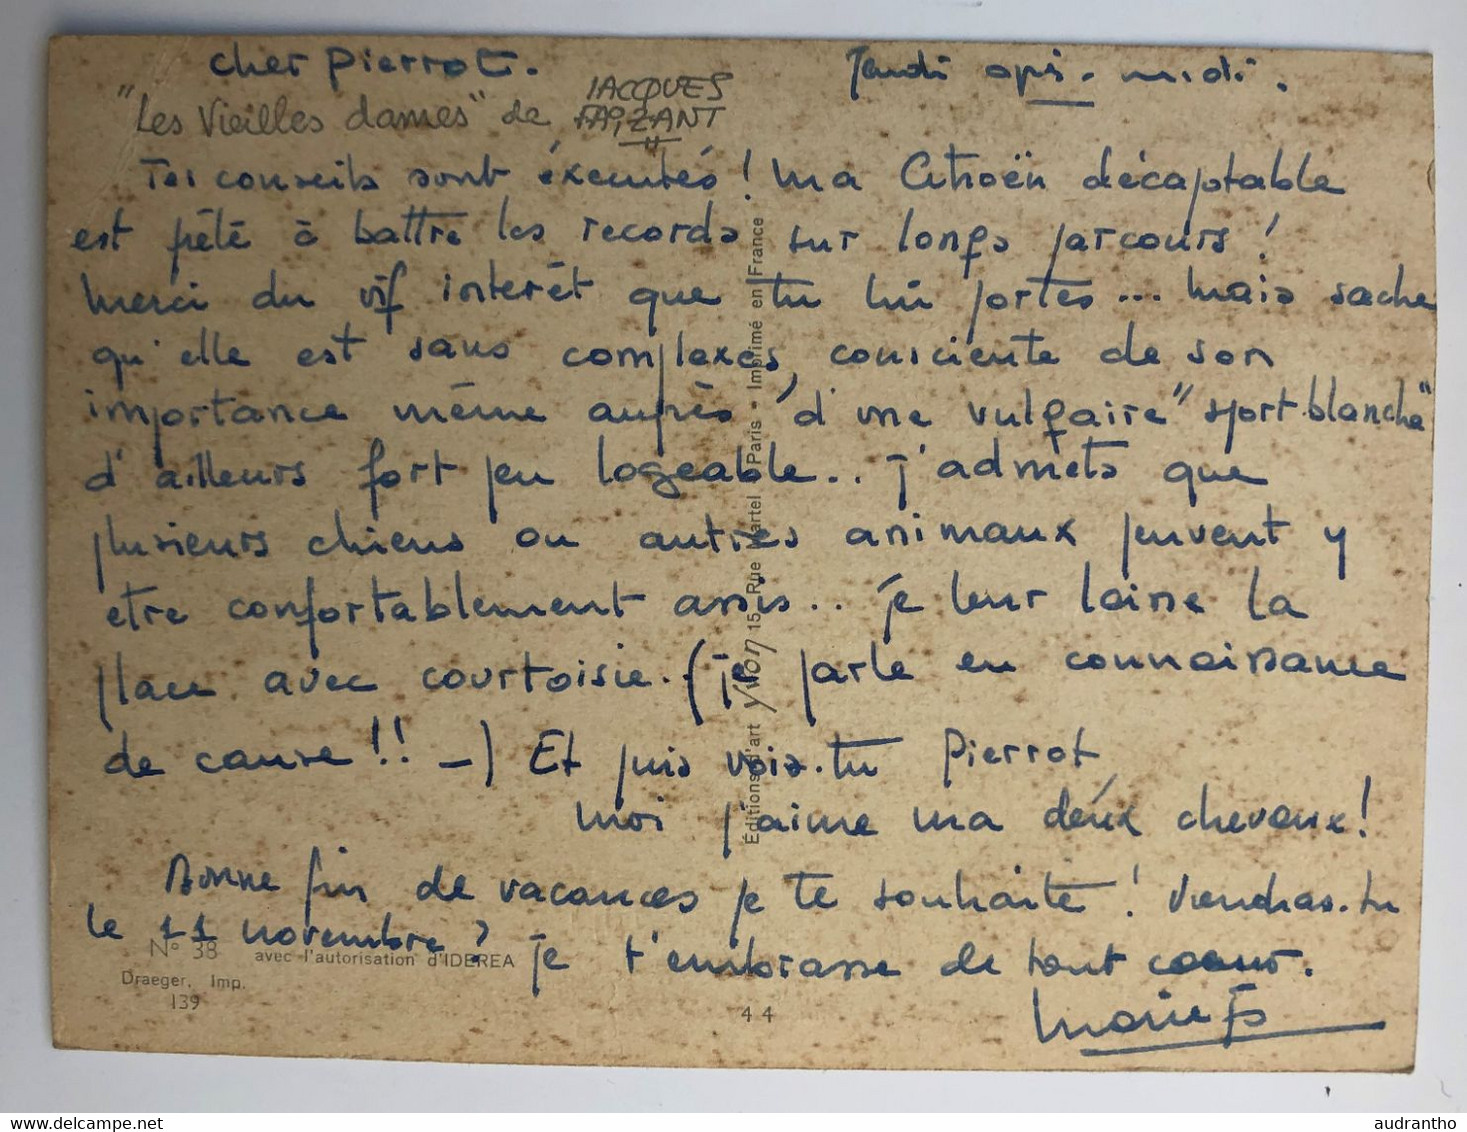 cher Pierrot.
Jeudi apr.-midi.
"Les Vieilles dames" de JACQUES
FAIZANT
Tes conseils sont éxecutés! ma Citroën décapotable
est prête à battre les records sur longs parcours!
Merci du vif interêt que tu lui portes... mais sache
qu'elle est sans complexes, consciente de son
importance même auprès d'une vulgaire "sport-blanche"
d'ailleurs fort peu logeable.. j'admets que
plusieurs chiens ou autres animaux peuvent y
etre confortablement assis.. je leur laisse la
place avec courtoisie. (je parle en connaissance
de cause!! -) Et puis vois-tu Pierrot,
moi j'aime ma deux chevaux!
Bonne fin de vacances je te souhaite! Viendras-tu
le 11 novembre? je t'embrasse de tout coeur.
Editions d'art Yvon 15, Rue Martel Paris • Imprimé en France
N° 38 avec l'autorisation d'IDEREA
Draeger, Imp.
139
44
audrantho